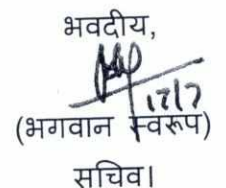 भवदीय,
17/7
(भगवान स्वरूप)
सचिव।